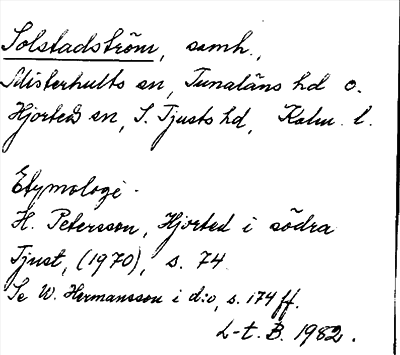 Solstadström, samh.,
Misterhults sn, Tunaläns hd o.
Hjorteds sn, S. Tjusts hd, Kalm. l.
Etymologi.
H. Petersson, Hjorted i södra
Tjust, (1970), s. 74.
Se W. Hermansson i d:o, s. 174 ff.
L-t. B. 1982.